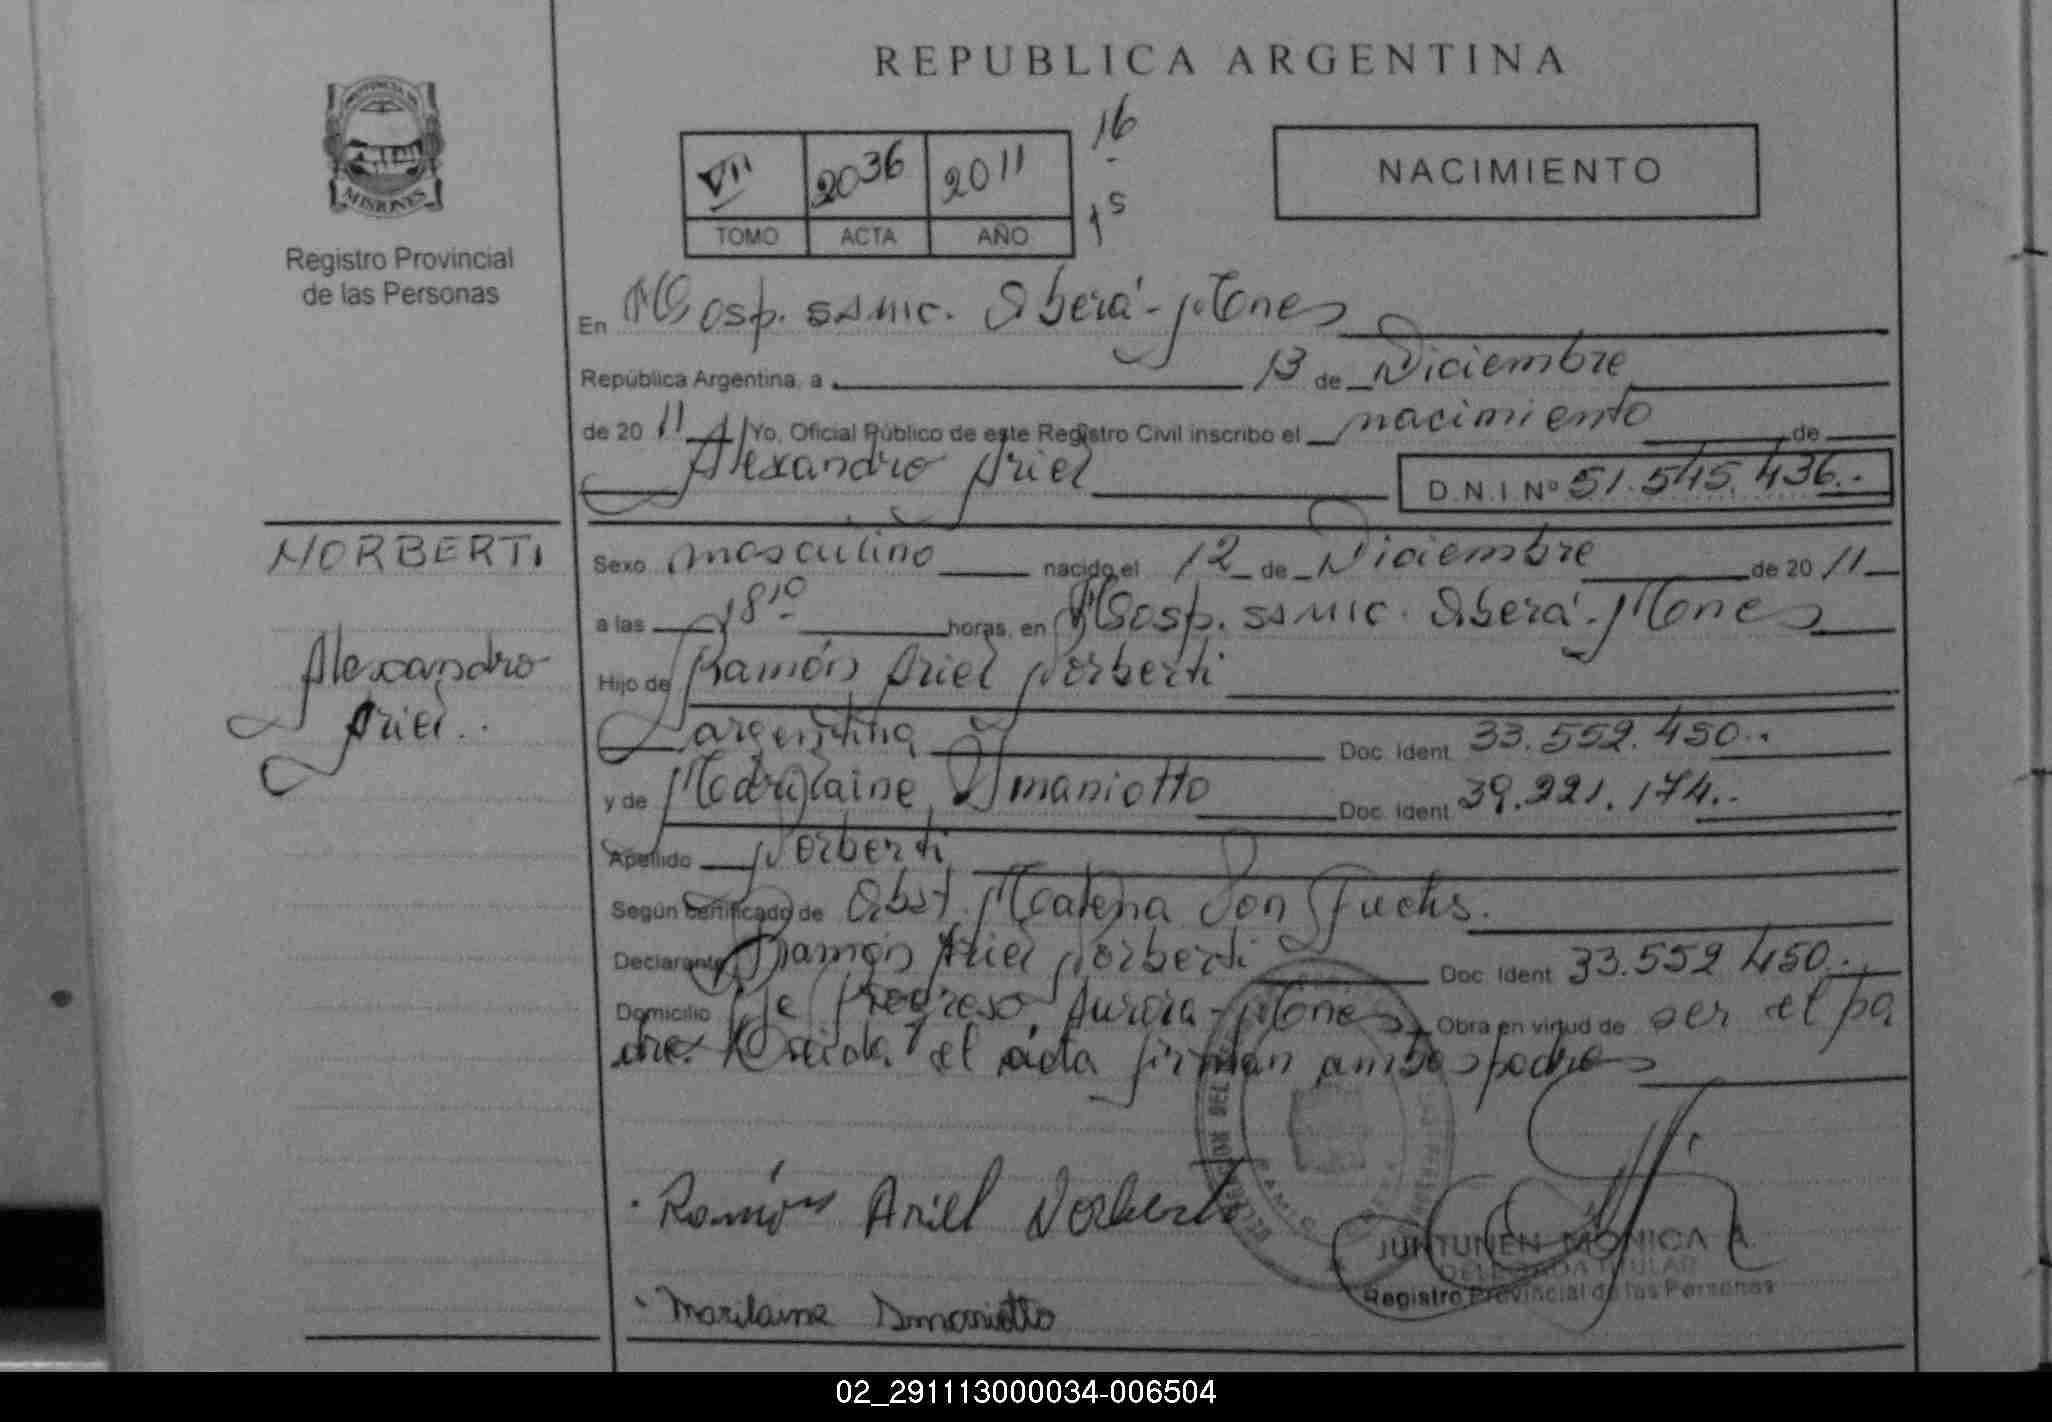 REPUBLICA ARGENTINA
MISIONES
Registro Provincial
de las Personas
VII 2036 2011
TOMO ACTA AÑO
16
15
NACIMIENTO
En Hosp. SAMIC. Oberá - Mones
República Argentina, a 13 de Diciembre
de 20 11 Yo, Oficial Público de este Registro Civil inscribo el nacimiento de
Alexandro Ariel D.N.I Nº 51.545.436..
NORBERTI
Alexandro
Ariel..
Sexo masculino nacido el 12 de Diciembre de 20 11
a las 18 10 horas, en Hosp. SAMIC. Oberá - Mones
Hijo de Ramón Ariel Norberti
argentina Doc. Ident 33.552.450..
y de Smaniotto Doc. Ident 39.221.174..
Apellido Norberti
Según certificado de Obst. Von Fuchs.
Declarante Ramón Ariel Norberti Doc. Ident 33.552.450..
Domicilio Pje Progreso Aurora - Mones Obra en virtud de ser el pa
dre. Leída el acta firman ambos padres
Ramón Ariel Norberti
JUNTUNEN MONICA A.
DELEGADA TITULAR
Registro Provincial de las Personas
Marilaine Smaniotto
02_291113000034-006504